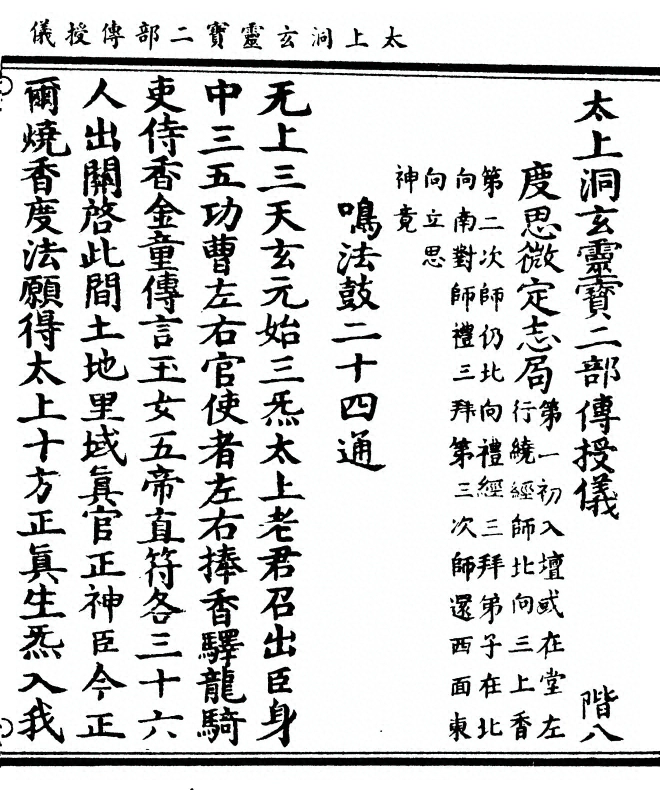 太上洞玄靈寶二部傳授儀
太上洞玄靈寶二部傳授儀 階八
度思微定志局 第一初入壇或在堂左
行繞經師北向三上香
第二次師仍北向禮經三拜弟子在北
向南對師禮三拜第三次師還西面東
向立思
神竟
鳴法鼓二十四通
无上三天玄元始三炁太上老君召出臣身
中三五功曹左右官使者左右捧香驛龍騎
吏侍香金童傳言玉女五帝直符各三十六
人出關啓此間土地里域眞官正神臣今正
爾燒香度法願得太上十方正眞生炁入我